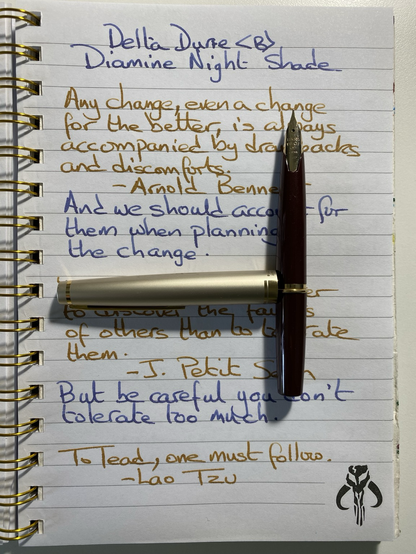 Delta Dune <B>
Diamine Night Shade
Any change, even a change
for the better, is always
accompanied by drawbacks
and discomforts.
- Arnold Benne
And we should account for
them when planning
the change.
to the fau
of others than to tolerate
them.
- J. Petit
But be careful you don't
tolerate too much.
To lead, one must follow.
- Lao Tzu